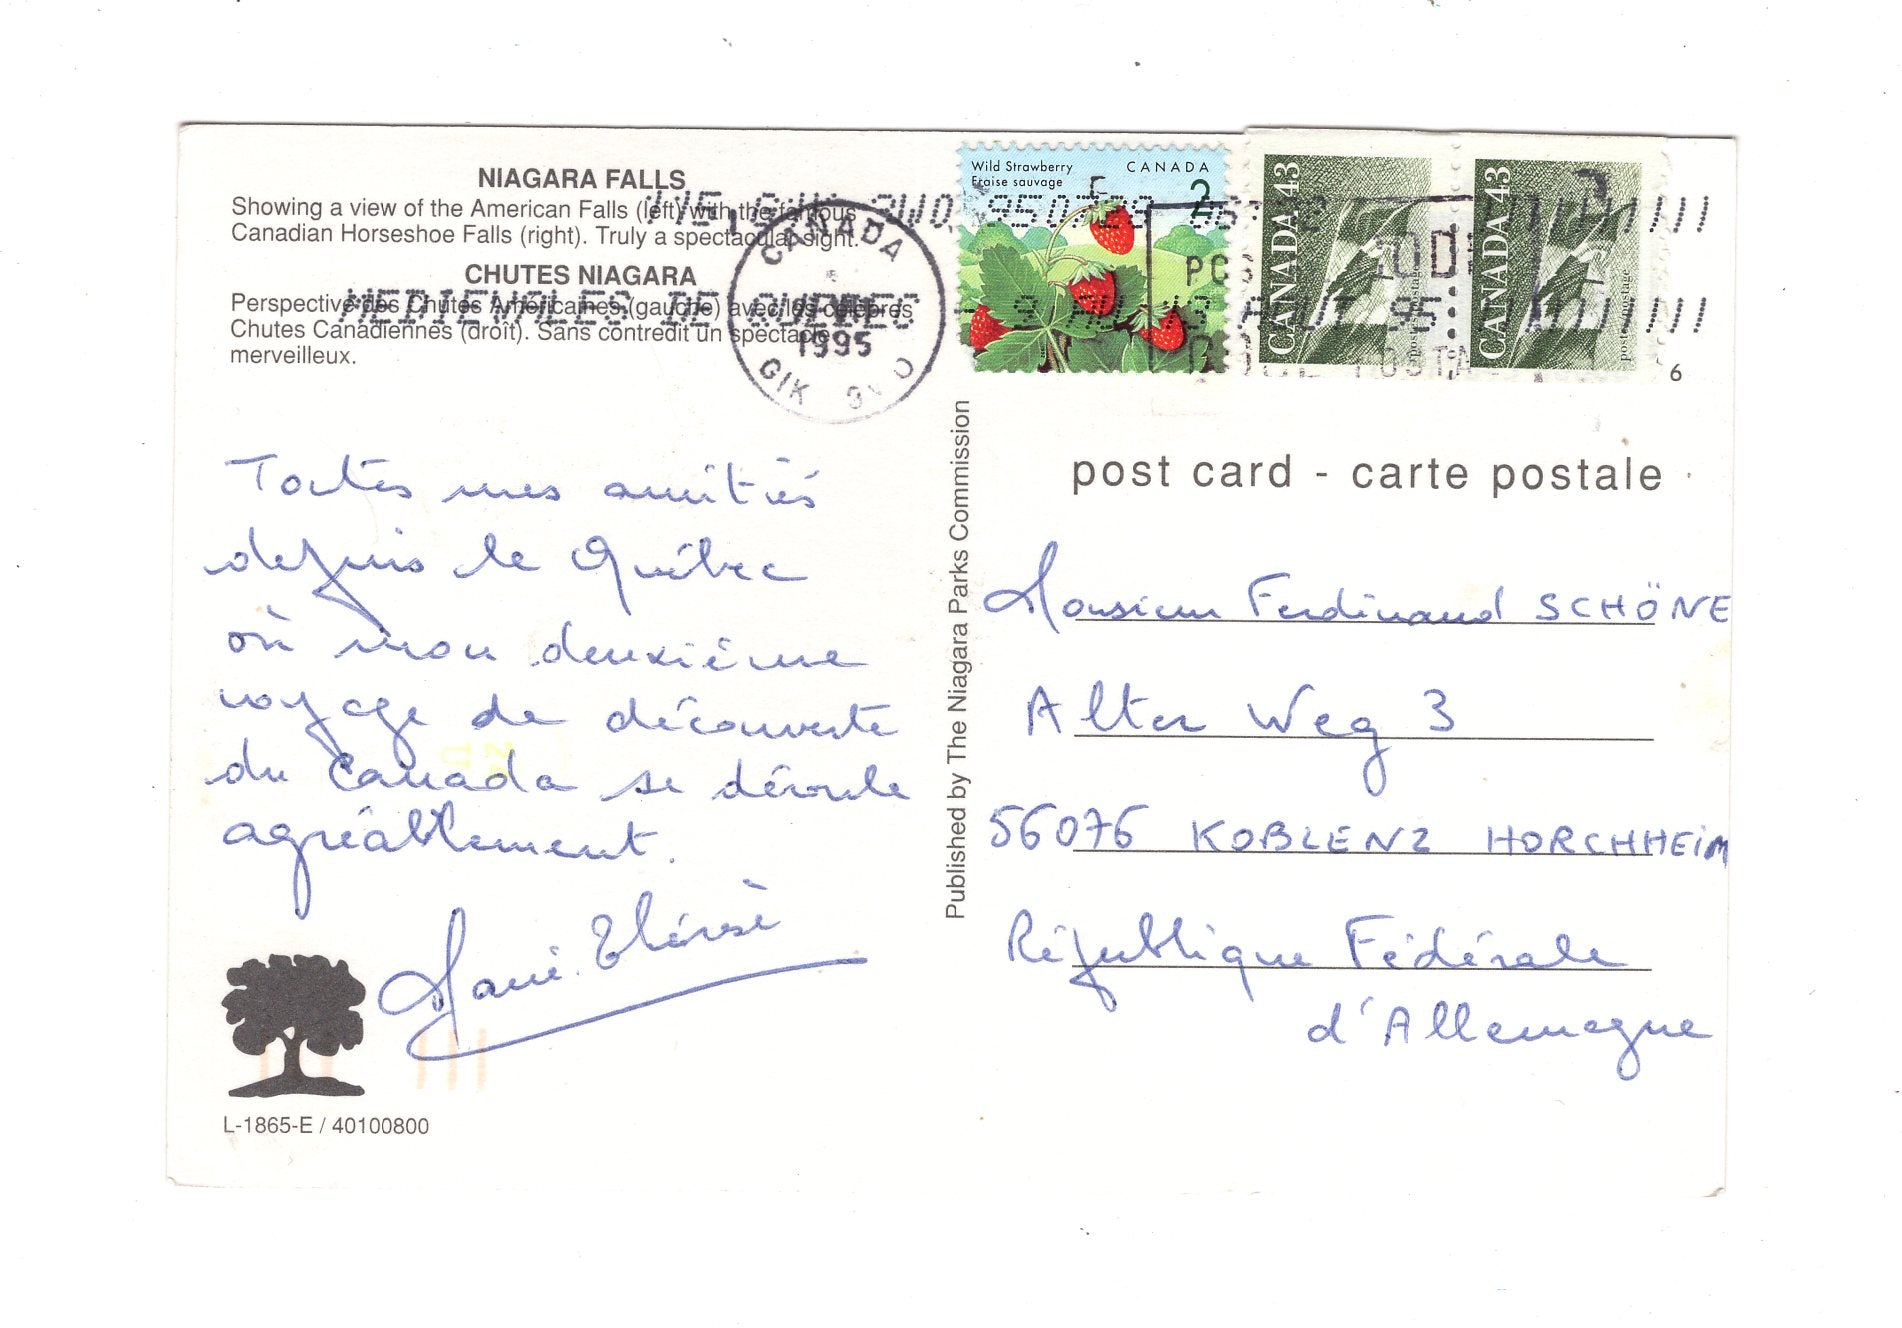 NIAGARA FALLS
Showing a view of the American Falls (left) with the famous
Canadian Horseshoe Falls (right). Truly a spectacular sight.
CHUTES NIAGARA
Perspective des Chutes Américaines (gauche) avec les célèbres
Chutes Canadiennes (droit). Sans contredit un spectacle
merveilleux.
CANADA
1995
G1K
MEDIEVALES DE QUEBEC
9 AU 13 AOUT 95
Wild Strawberry CANADA
Fraise sauvage 2
CANADA 43
postage postes
CANADA 43
postage postes
6
Toutes mes amitiés
depuis le Québec
où mon deuxième
voyage de découverte
du Canada se déroule
agréablement.
Marie Thérèse
L-1865-E / 40100800
Published by The Niagara Parks Commission
post card - carte postale
Monsieur Ferdinand SCHÖNE
Alter Weg 3
56076 KOBLENZ HORCHHEIM
République Fédérale
d'Allemagne